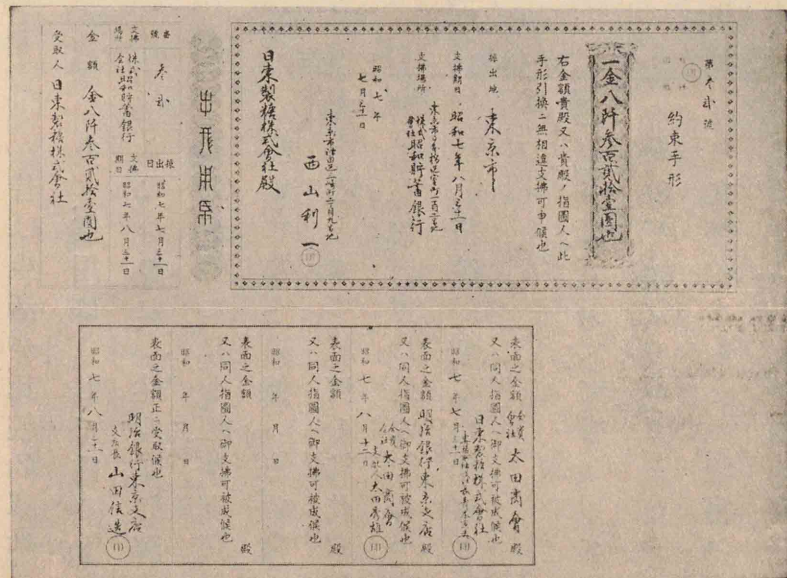 第参弐號
約束手形
一金八阡参百貳拾壹圓也
右金額貴殿又ハ貴殿ノ指圖人ヘ此
手形引換ニ無相違支拂可申候也
振出地 東京市
支拂期日 昭和七年八月三十一日
支拂場所
株式會社昭和貯蓄銀行
昭和七年
七月三十一日
西山利一
印
日東製糖株式會社殿
番號 参弐
支拂場所 株式會社昭和貯蓄銀行
振出日 昭和七年七月三十一日
支拂期日 昭和七年八月三十一日
金額 金八阡参百貳拾壹圓也
受取人 日東製糖株式會社
表面之金額 合資會社太田商會殿
又ハ同人指圖人ヘ御支拂可被成候也
昭和七年七月三十一日
日東製糖株式會社
印
表面之金額 明治銀行東京支店殿
又ハ同人指圖人ヘ御支拂可被成候也
昭和七年八月十二日
合資會社太田商會
印
表面之金額 殿
又ハ同人指圖人ヘ御支拂可被成候也
昭和 年 月 日
表面之金額 殿
又ハ同人指圖人ヘ御支拂可被成候也
昭和 年 月 日
表面之金額正ニ受取候也
昭和七年八月三十一日
明治銀行東京支店
支店長 山田信造
印